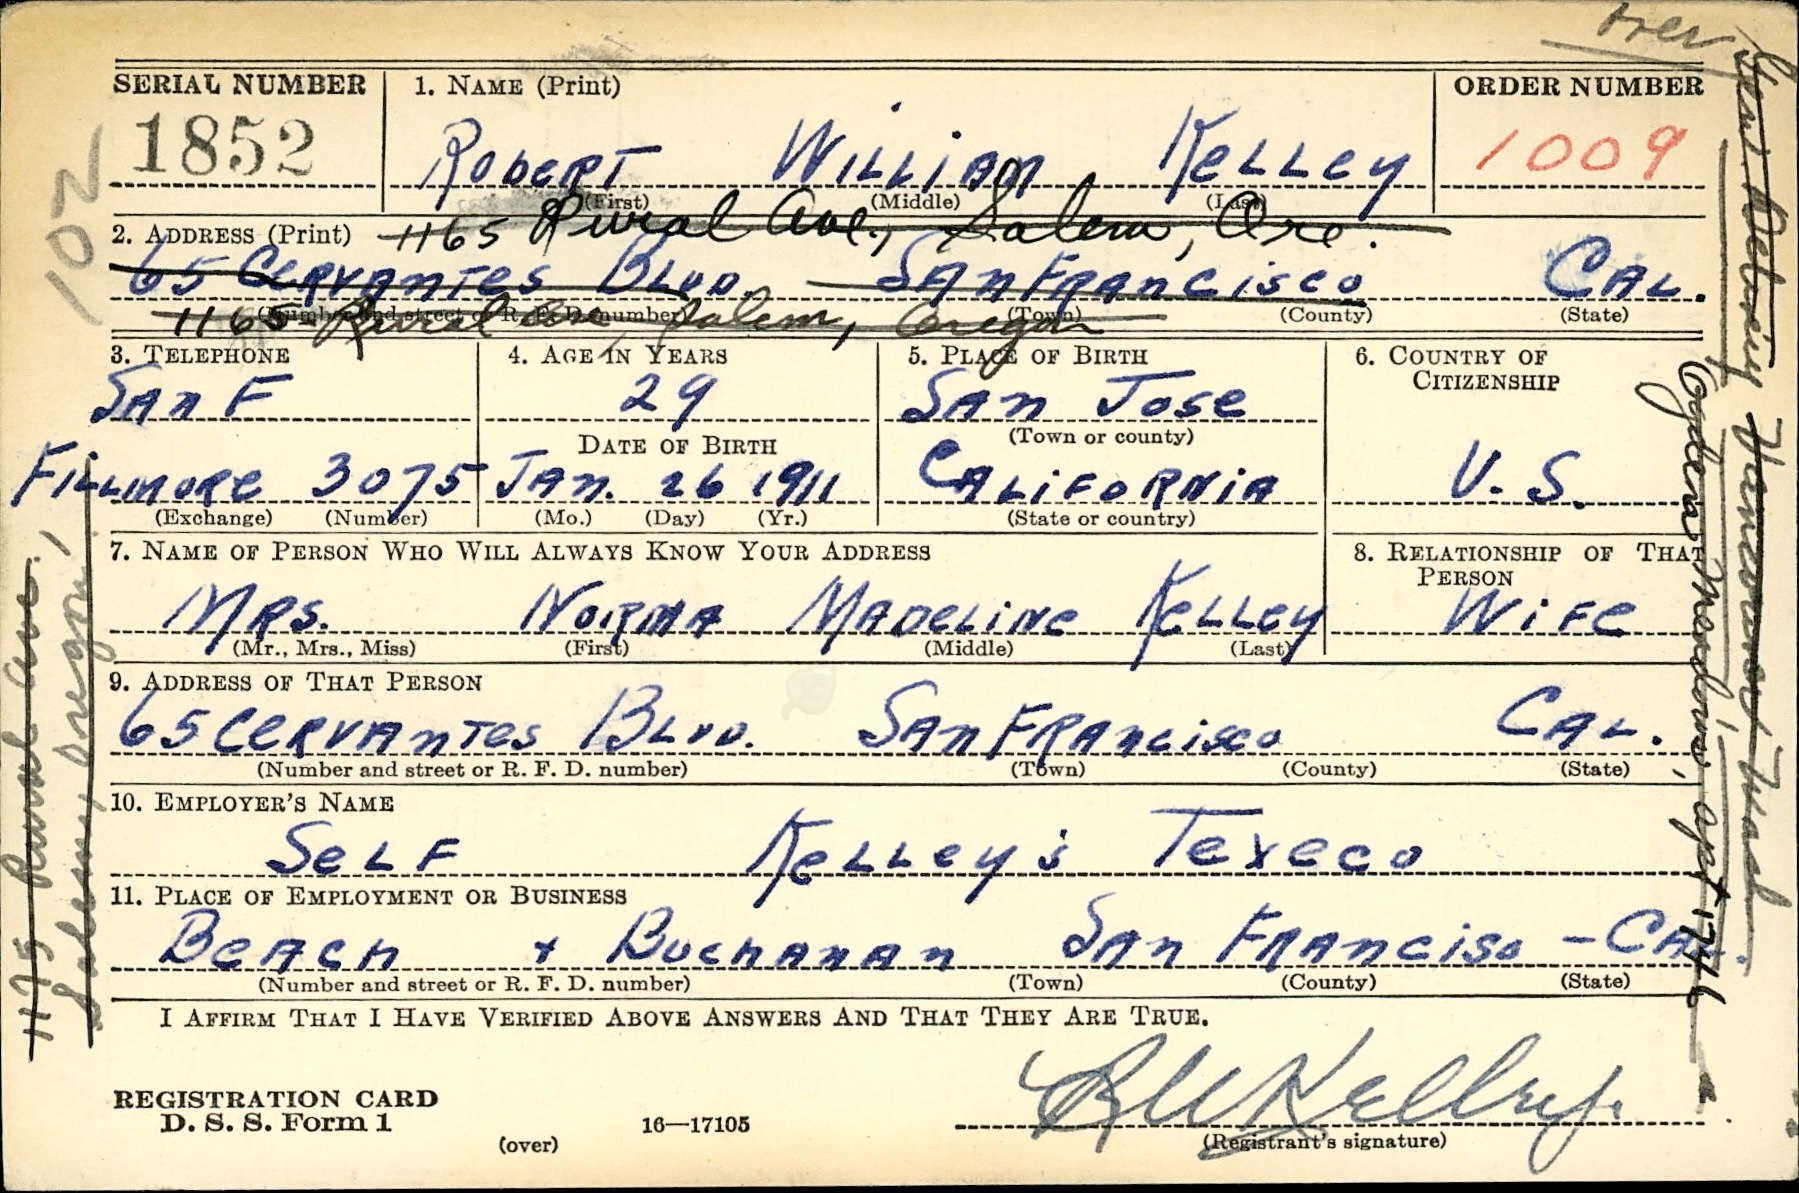 over
SERIAL NUMBER 1. NAME (Print) ORDER NUMBER
1852 ROBERT WILLIAM KELLEY 1009
(First) (Middle) (Last)
102
2. ADDRESS (Print) 1165 Rural Ave., Salem, Ore.
65 CERVANTES BLVD. SAN FRANCISCO CAL.
(Number and street or R. F. D. number) (Town) (County) (State)
1165 Rural Ave, Salem, Oregon
3. TELEPHONE 4. AGE IN YEARS 5. PLACE OF BIRTH 6. COUNTRY OF CITIZENSHIP
SAN F 29 SAN JOSE
DATE OF BIRTH (Town or county)
FILLMORE 3075 JAN. 26 1911 CALIFORNIA U. S.
(Exchange) (Number) (Mo.) (Day) (Yr.) (State or country)
7. NAME OF PERSON WHO WILL ALWAYS KNOW YOUR ADDRESS 8. RELATIONSHIP OF THAT PERSON
MRS. NORMA MADELINE KELLEY WIFE
(Mr., Mrs., Miss) (First) (Middle) (Last)
9. ADDRESS OF THAT PERSON
65 CERVANTES BLVD. SAN FRANCISCO CAL.
(Number and street or R. F. D. number) (Town) (County) (State)
10. EMPLOYER'S NAME
SELF KELLEY'S TEXECO
11. PLACE OF EMPLOYMENT OR BUSINESS
BEACH + BUCHANAN SAN FRANCISO - CAL.
(Number and street or R. F. D. number) (Town) (County) (State)
I AFFIRM THAT I HAVE VERIFIED ABOVE ANSWERS AND THAT THEY ARE TRUE.
R W Kelley
REGISTRATION CARD
D. S. S. Form 1
(over) 16—17105 (Registrant's signature)
1175 Rural ave.
Salem, Oregon
Gen. Delivery Vancouver, Wash.
Ogden Meadows, apt 1746